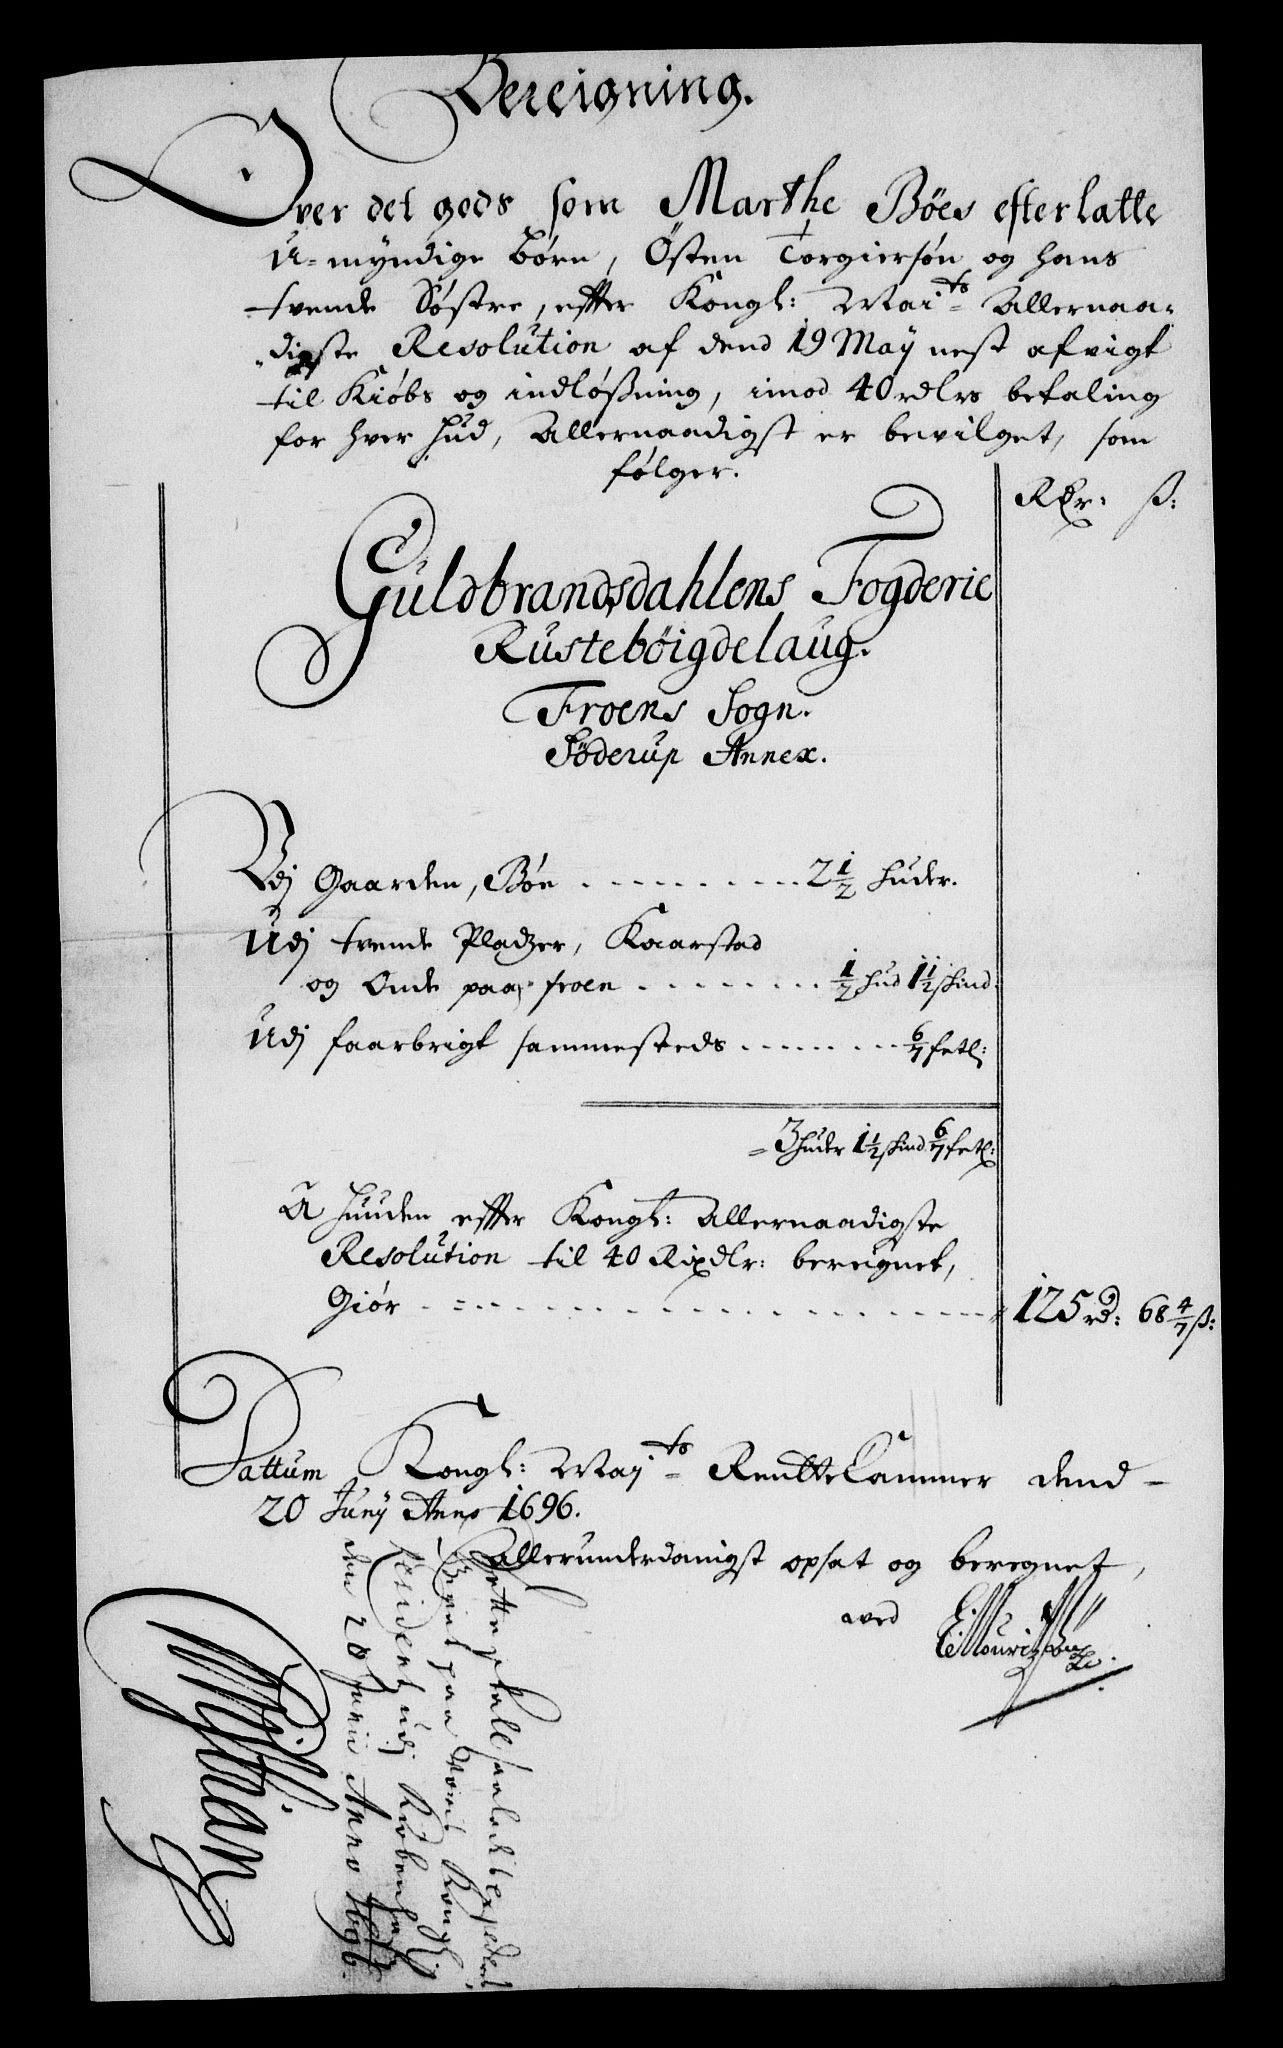 Bereigning.
Over det gods som Marthe Böes efterlatte
U-myndige børn, Östen Torgiersøn og hans
tvende Søstre, effter Kongl: Mai.ts Allernaa-
digste Resolution af dend 19 Maÿ nest afvigt
til Kiøbs og indløßning, imod 40 rdlrs betaling
for hver hud, Allernaadigst er bevilget, som
følger.
Rdr: ß:
Guldbrandsdahlens Fogderie
Rustebøigdelaug.
Froens Sogn.
Söderup Annex.
Udj Gaarden, Böe 2 1/2 huder.
Udj tvende Pladtzer, Kaarstad
og Onde paa froen 1/2 hud 1 1/2 skind:
Udj faarbrigt sammesteds 6/7 fetl:
= 3 huder 1 1/2 skind 6/7 fetl:
A huuden effter Kongl: Allernaadigste
Resolution til 40 Rixdlr: bereignet,
Giör 125 rd: 68 4/7 ß:
Dattum Kongl: Maÿ.ts RentteCammer dend
20 Junÿ Anno 1696.
Allerunderdanigst opsat og beregnet,
wed
Dette skall saaledes expederis
Givet paa Vores Kongl:
Residentz udj Kiøbenhafn
den 20 Junii Anno 1696.
Christian